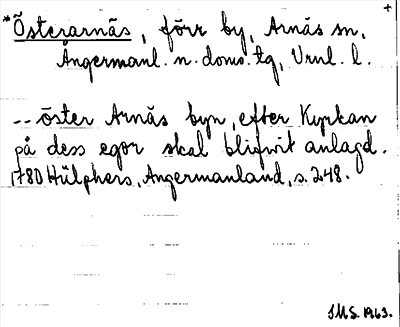 *Österarnäs, förr by, Arnäs sn,
Ångermanl. n. doms. tg, Vrnl. l.
-- öster Arnäs byn, efter Kyrkan
på dess egor skal blifwit anlagd.
1780 Hülphers, Angermanland, s. 248.
IMS. 1963.
+